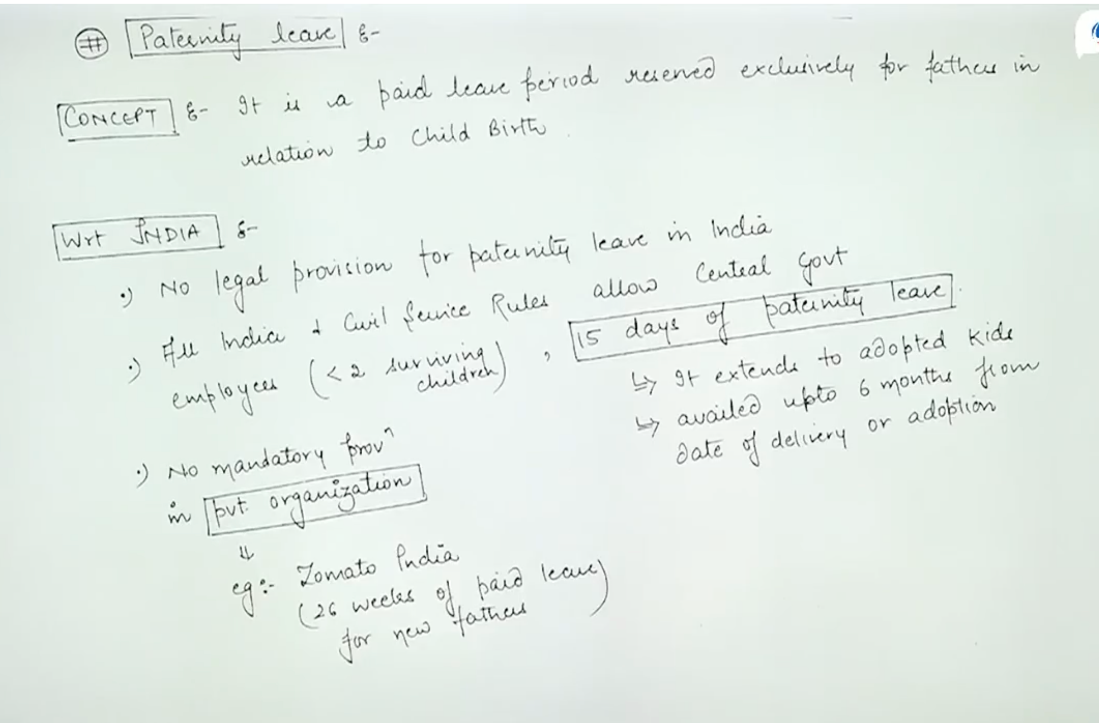 # Paternity leave :-
CONCEPT :- It is a paid leave period reserved exclusively for fathers in
relation to Child Birth.
Wrt INDIA :-
•) No legal provision for paternity leave in India
•) All India & Civil Service Rules allow Central Govt
employees (<2 surviving children), 15 days of paternity leave.
↳ It extends to adopted kids
↳ availed upto 6 months from
date of delivery or adoption
•) No mandatory provⁿ
in pvt. organization
⇓
eg:- Zomato India
(26 weeks of paid leave)
for new fathers